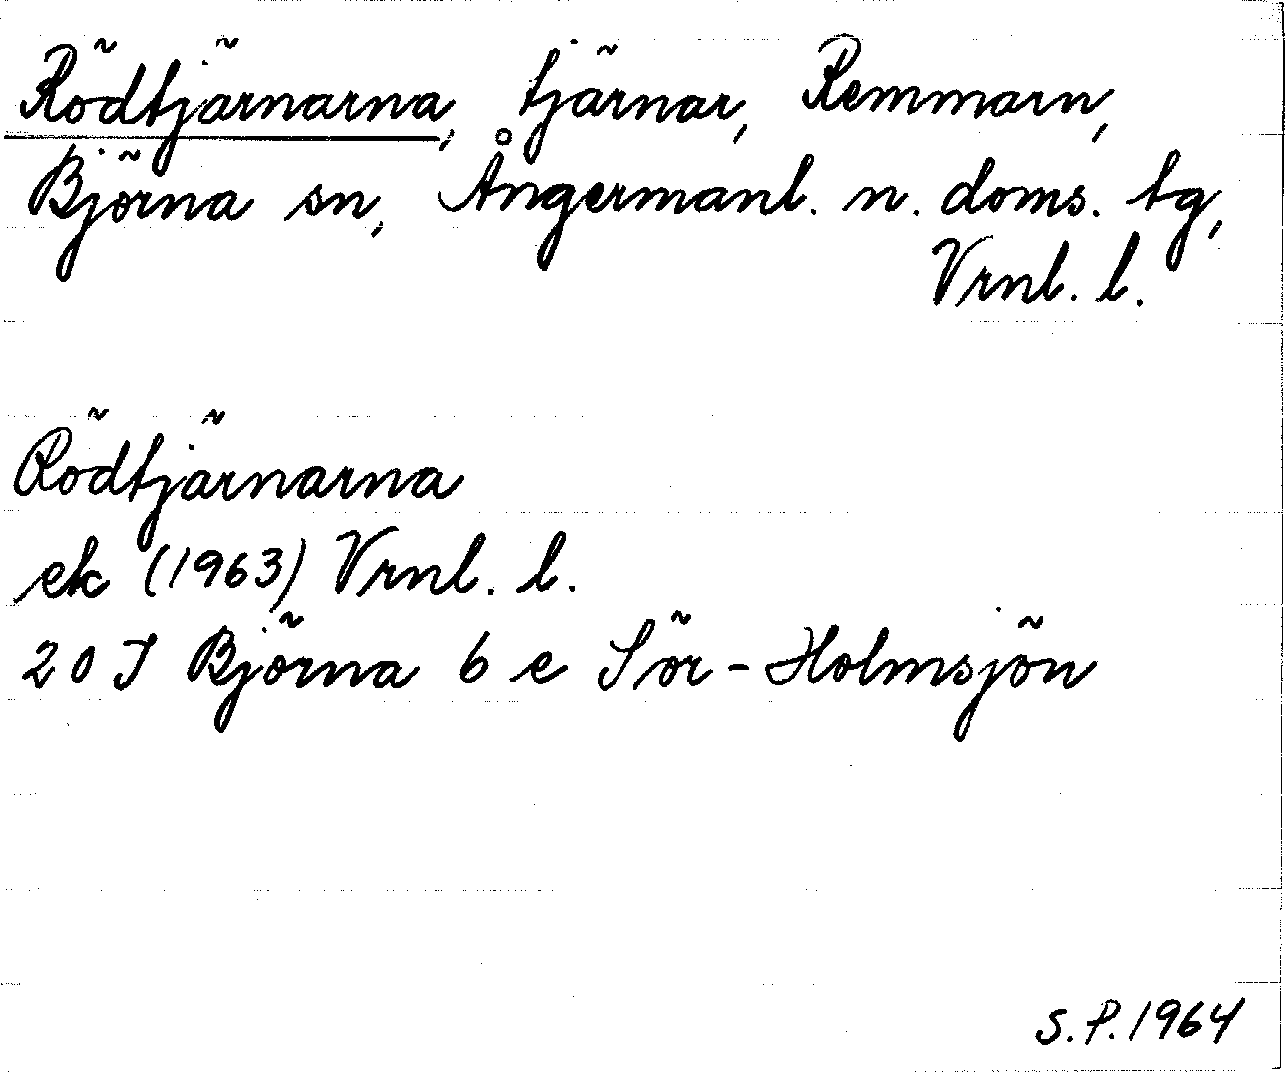 Rödtjärnarna, tjärnar, Remmarn,
Björna sn, Ångermanl. n. doms. tg,
Vrnl. l.
Rödtjärnarna
ek (1963) Vrnl. l.
20 J Björna 6 e Sör-Holmsjön
S.P. 1964